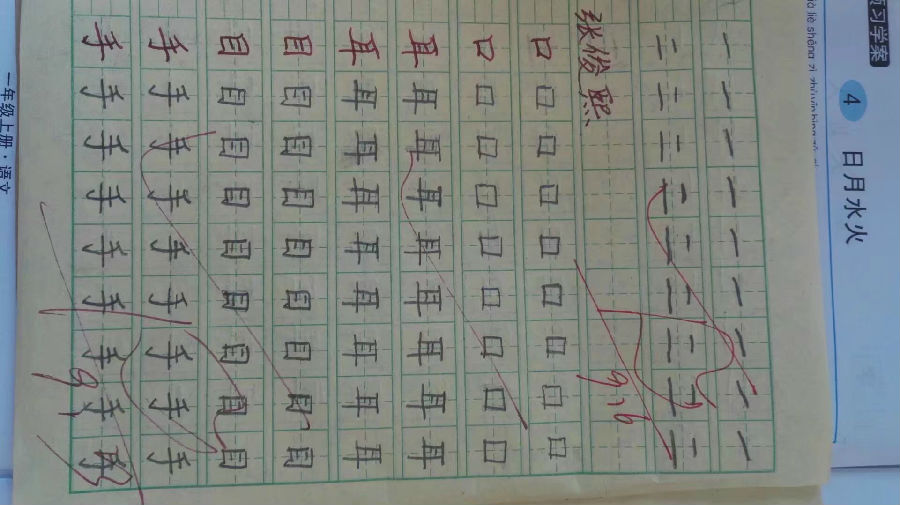 预习学案
4 日月水火
一一一一一一一一一
二二二二二二二二二
张俊熙
口口口口口口口口口
口口口口口口口口口
耳耳耳耳耳耳耳耳耳
耳耳耳耳耳耳耳耳耳
目目目目目目目目目
目目目目目目目目目
手手手手手手手手手
手手手手手手手手
一年级上册·语文